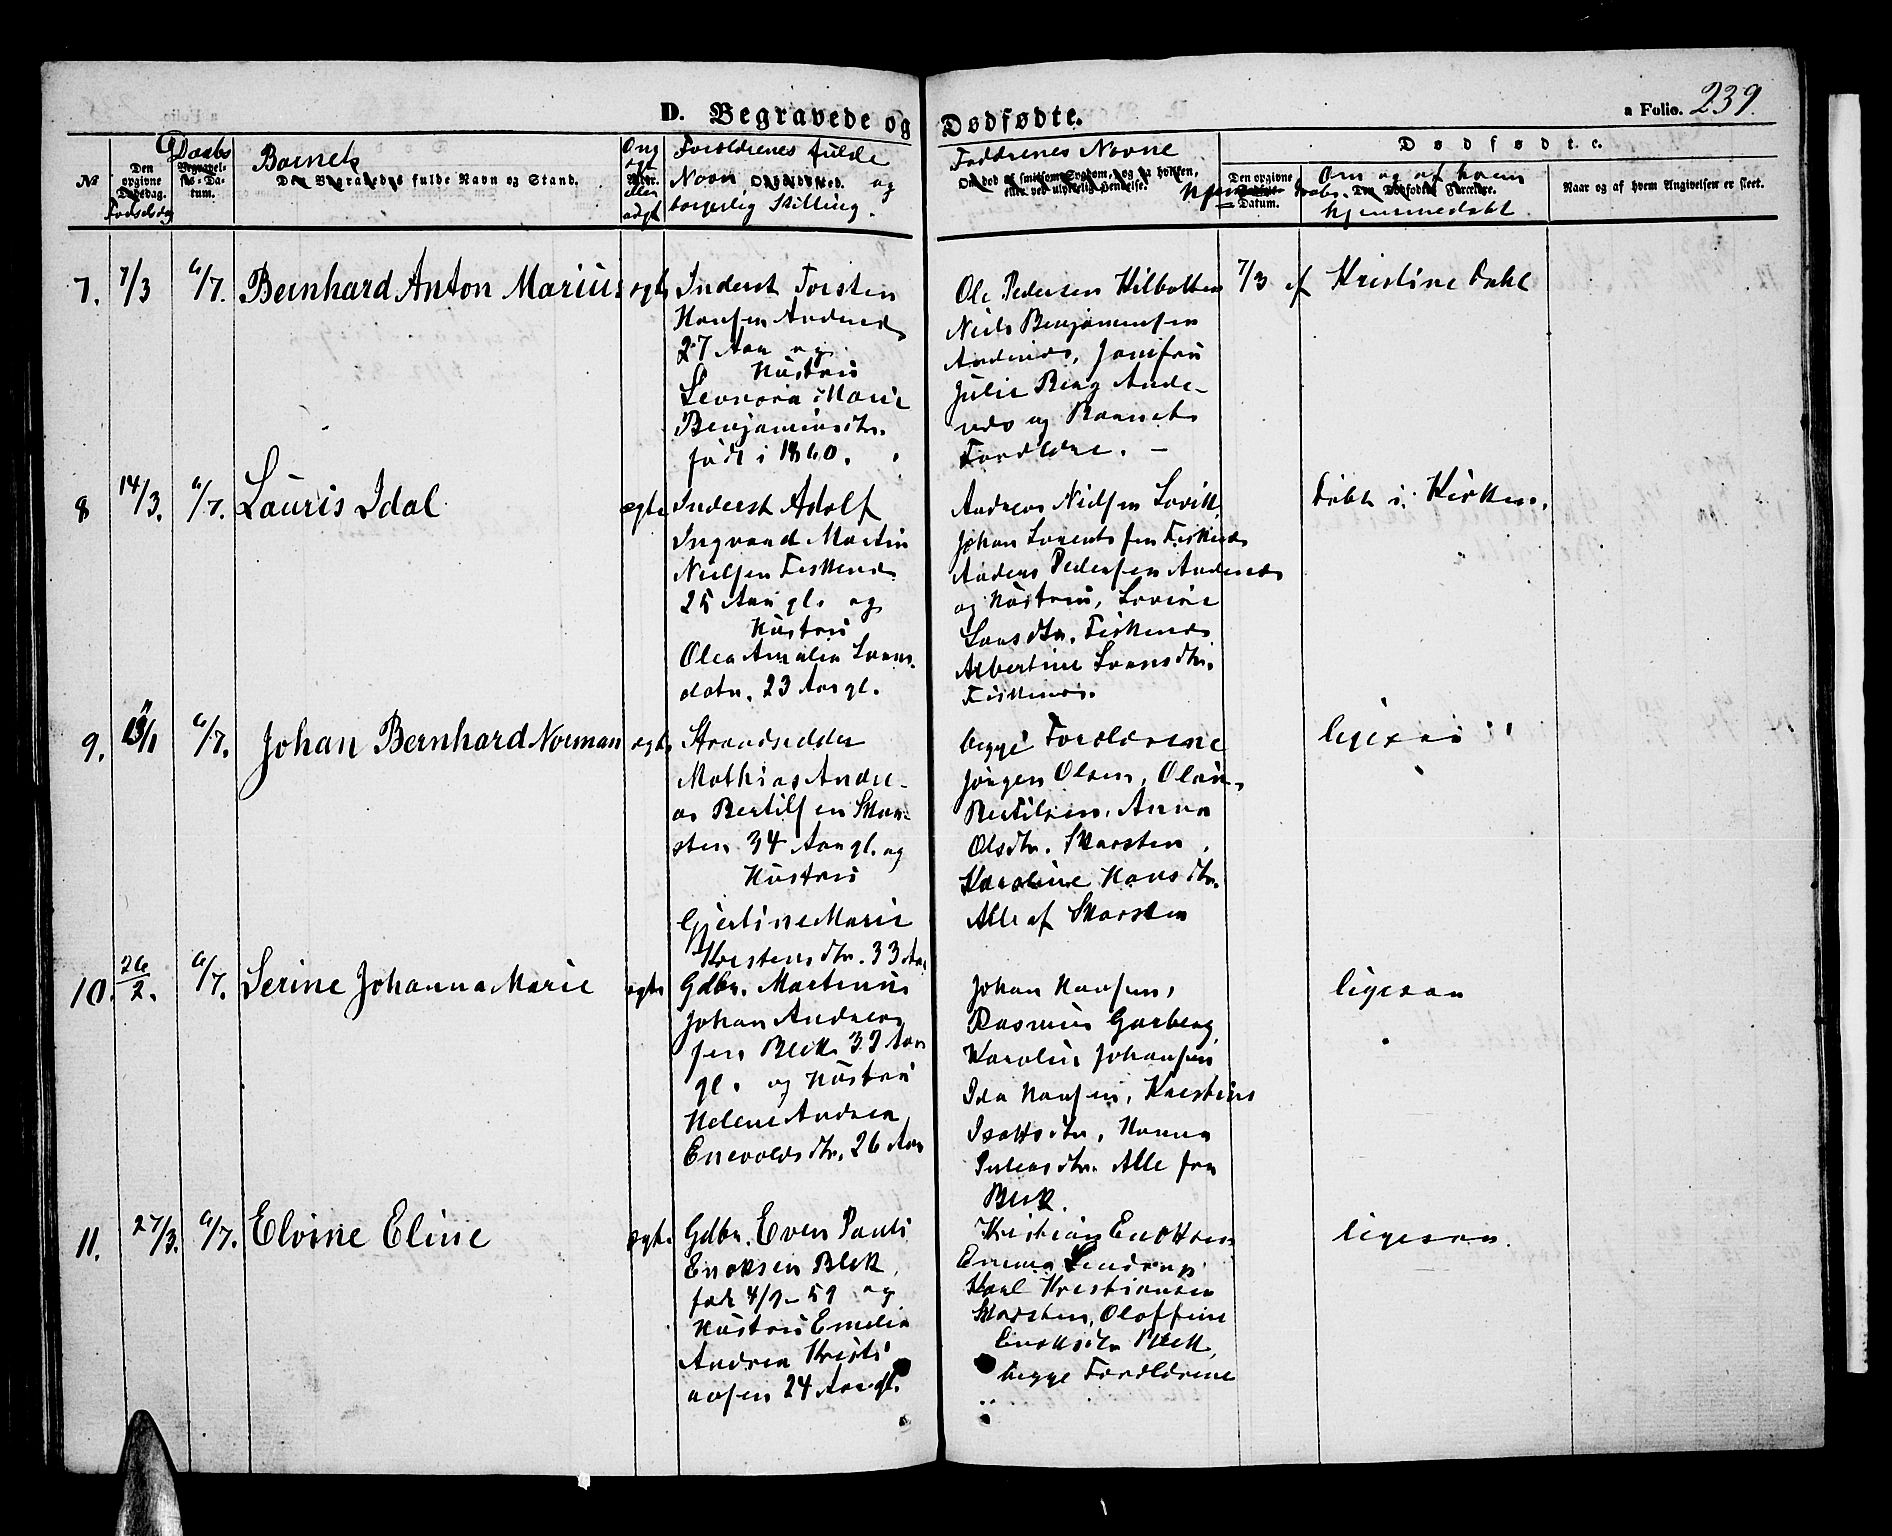 D. Begravede og Dødfødte.
a Folio. 239.
№
Den opgivne Dødsdag.
Fødselsdag
Daabs
Begravelses-Datum.
Barnets
Den Begravedes fulde Navn og Stand.
eller
Forældrenes fulde
Navn, og
borgerlig Stilling.
Faddrenes Navne
Om død af smitsom Sygdom, og da hvilken,
eller ved ulykkelig Hændelse.
Dødfødte.
Den opgivne
Datum.
Om og af hvem
Den Dødfødtes Forældre.
hjemmedøbt.
Naar og af hvem Angivelsen er skeet.
7. 7/3 6/7. Bernhard Anton Marius ægte
Inderst Torsten
Hansen Andenes
27 Aar og
Hustru
Leonora Marie
Benjaminsdtr.
født i 1860.
Ole Pedersen Kilbotten
Niels Benjaminsen
Andenes, Jomfru
Julie Berg Ande-
nes og Barnets
Forældre. –
7/3 af Kristine Dahl
8 14/3. 6/7. Lauris Idal ægte
Inderst Adolf
Ingvard Martin
Nielsen Fiskenes
25 Aar gl. og
Hustru
Olea Amalia Lars-
datr. 23 Aar gl.
Andreas Nielsen Lovik
Johan Lorentsen Fiskenes
Anders Pedersen Andenes
og Hustru, Lovise
Larsdtr. Fiskenes
Albertine Larsdtr.
Fiskenes.
Døbt i Kirken.
9. 6/7. Johan Bernhard Norman ægte
Strandsidder
Mathias Andre-
as Bertilsen Skar-
sten 34 Aar gl. og
Hustru
Gjertine Marie
Torstensdtr. 33 Aar
begge Forældrene
Jørgen Olsen,
Bertilsen, Anna
Olsdtr. Skarsten,
Karoline Hansdtr.
Alle af Skarsten
ligesaa
10. 26/2. 6/7. Serine Johanna Marie ægte
Gdbr. Martinus
Johan Andreas
sen Bleik 33 Aar
gl. og Hustru
Helene Andrea
Enevoldsdtr. 26 Aar
Johan Hansen,
Rasmus Garberg,
Karolius Johansen
Ida Hansen, Kristine
Isaksdtr, Hanna
Alle fra
Bleik.
ligesaa
11. 27/3. 6/7. Elvine Eline ægte
Gdbr. Even Pauli
Enoksen Bleik,
født 4/9-59 og
Hustru Emelie
Andrea Kristi
ansen 24 Aar gl.
Kristian Enoksen
Emma
Karl Kristiansen
Skarsten, Oloffine
Enoksdtr Bleik,
begge Forældrene
ligesaa.